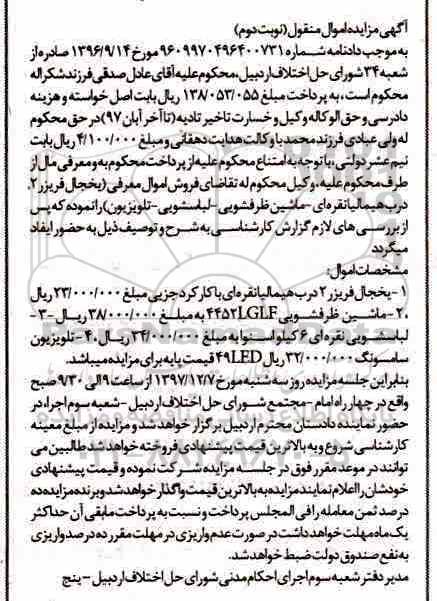 آگهی مزایده اموال منقول (نوبت دوم)
به موجب دادنامه شماره ۹۶۰۹۹۷۰۴۹۶۴۰۰۷۳۱ مورخ ۱۳۹۶/۹/۱۴ صادره از
شعبه ۳۴ شورای حل اختلاف اردبیل، محکوم علیه آقای عادل صدقی فرزند شکراله
محکوم است، به پرداخت مبلغ ۱۳۸/۰۵۳/۰۵۵ ریال بابت اصل خواسته و هزینه
دادرسی و حق الوکاله وکیل و خسارت تاخیر تادیه (تا آخر آبان ۹۷) در حق محکوم
له ولی عبادی فرزند محمد با وکالت هدایت دهقانی و مبلغ ۴/۱۰۰/۰۰۰ ریال بابت
نیم عشر دولتی، با توجه به امتناع محکوم علیه از پرداخت محکوم به و معرفی مال از
طرف محکوم علیه، وکیل محکوم له تقاضای فروش اموال معرفی (یخچال فریزر ۲.
درب هیمالیا نقره ای -ماشین ظرفشویی -لباسشویی-تلویزیون) را نموده که پس
از بررسی های لازم گزارش کارشناسی به شرح و توصیف ذیل به حضور ایفاد
میگردد
مشخصات اموال:
۱ - یخچال فریزر ۲ درب هیمالیا نقره ای با کارکرد جزیی مبلغ ۲۳/۰۰۰/۰۰۰ ریال
،۲- ماشین ظرفشویی ۴۴۵۲LGLF به مبلغ ۳۸/۰۰۰/۰۰۰ ریال -۳ -
لباسشویی نقره ای ۶ کیلو اسنوا به مبلغ ۳۴/۰۰۰/۰۰۰ ریال،۴- تلویزیون
سامسونگ ۳۲/۰۰۰/۰۰۰ ریال ۴۹LED قیمت پایه برای مزایده میباشد.
بنابراین جلسه مزایده روز سه شنبه مورخ ۱۳۹۷/۱۲/۷ از ساعت ۹ الی ۹/۳۰ صبح
واقع در چهارراه امام -مجتمع شورای حل اختلاف اردبیل -شعبه سوم اجراء در
حضور نماینده دادستان محترم اردبیل برگزار خواهد شد و مزایده از مبلغ معینه
کارشناسی شروع و به بالاترین قیمت پیشنهادی فروخته خواهد شد طالبین می
توانند در موعد مقرر فوق در جلسه مزایده شرکت نموده و قیمت پیشنهادی
خودشان را اعلام نمایند مزایده به بالاترین قیمت واگذار خواهد شد و برنده مزایده ده
درصد ثمن معامله را فی المجلس پرداخت و نسبت به پرداخت مابقی آن حداکثر
یک ماه مهلت خواهد داشت در صورت عدم واریزی در مهلت مقرر ده درصد واریزی
به نفع صندوق دولت ضبط خواهد شد.
مدیر دفتر شعبه سوم اجرای احکام مدنی شورای حل اختلاف اردبیل - پنج